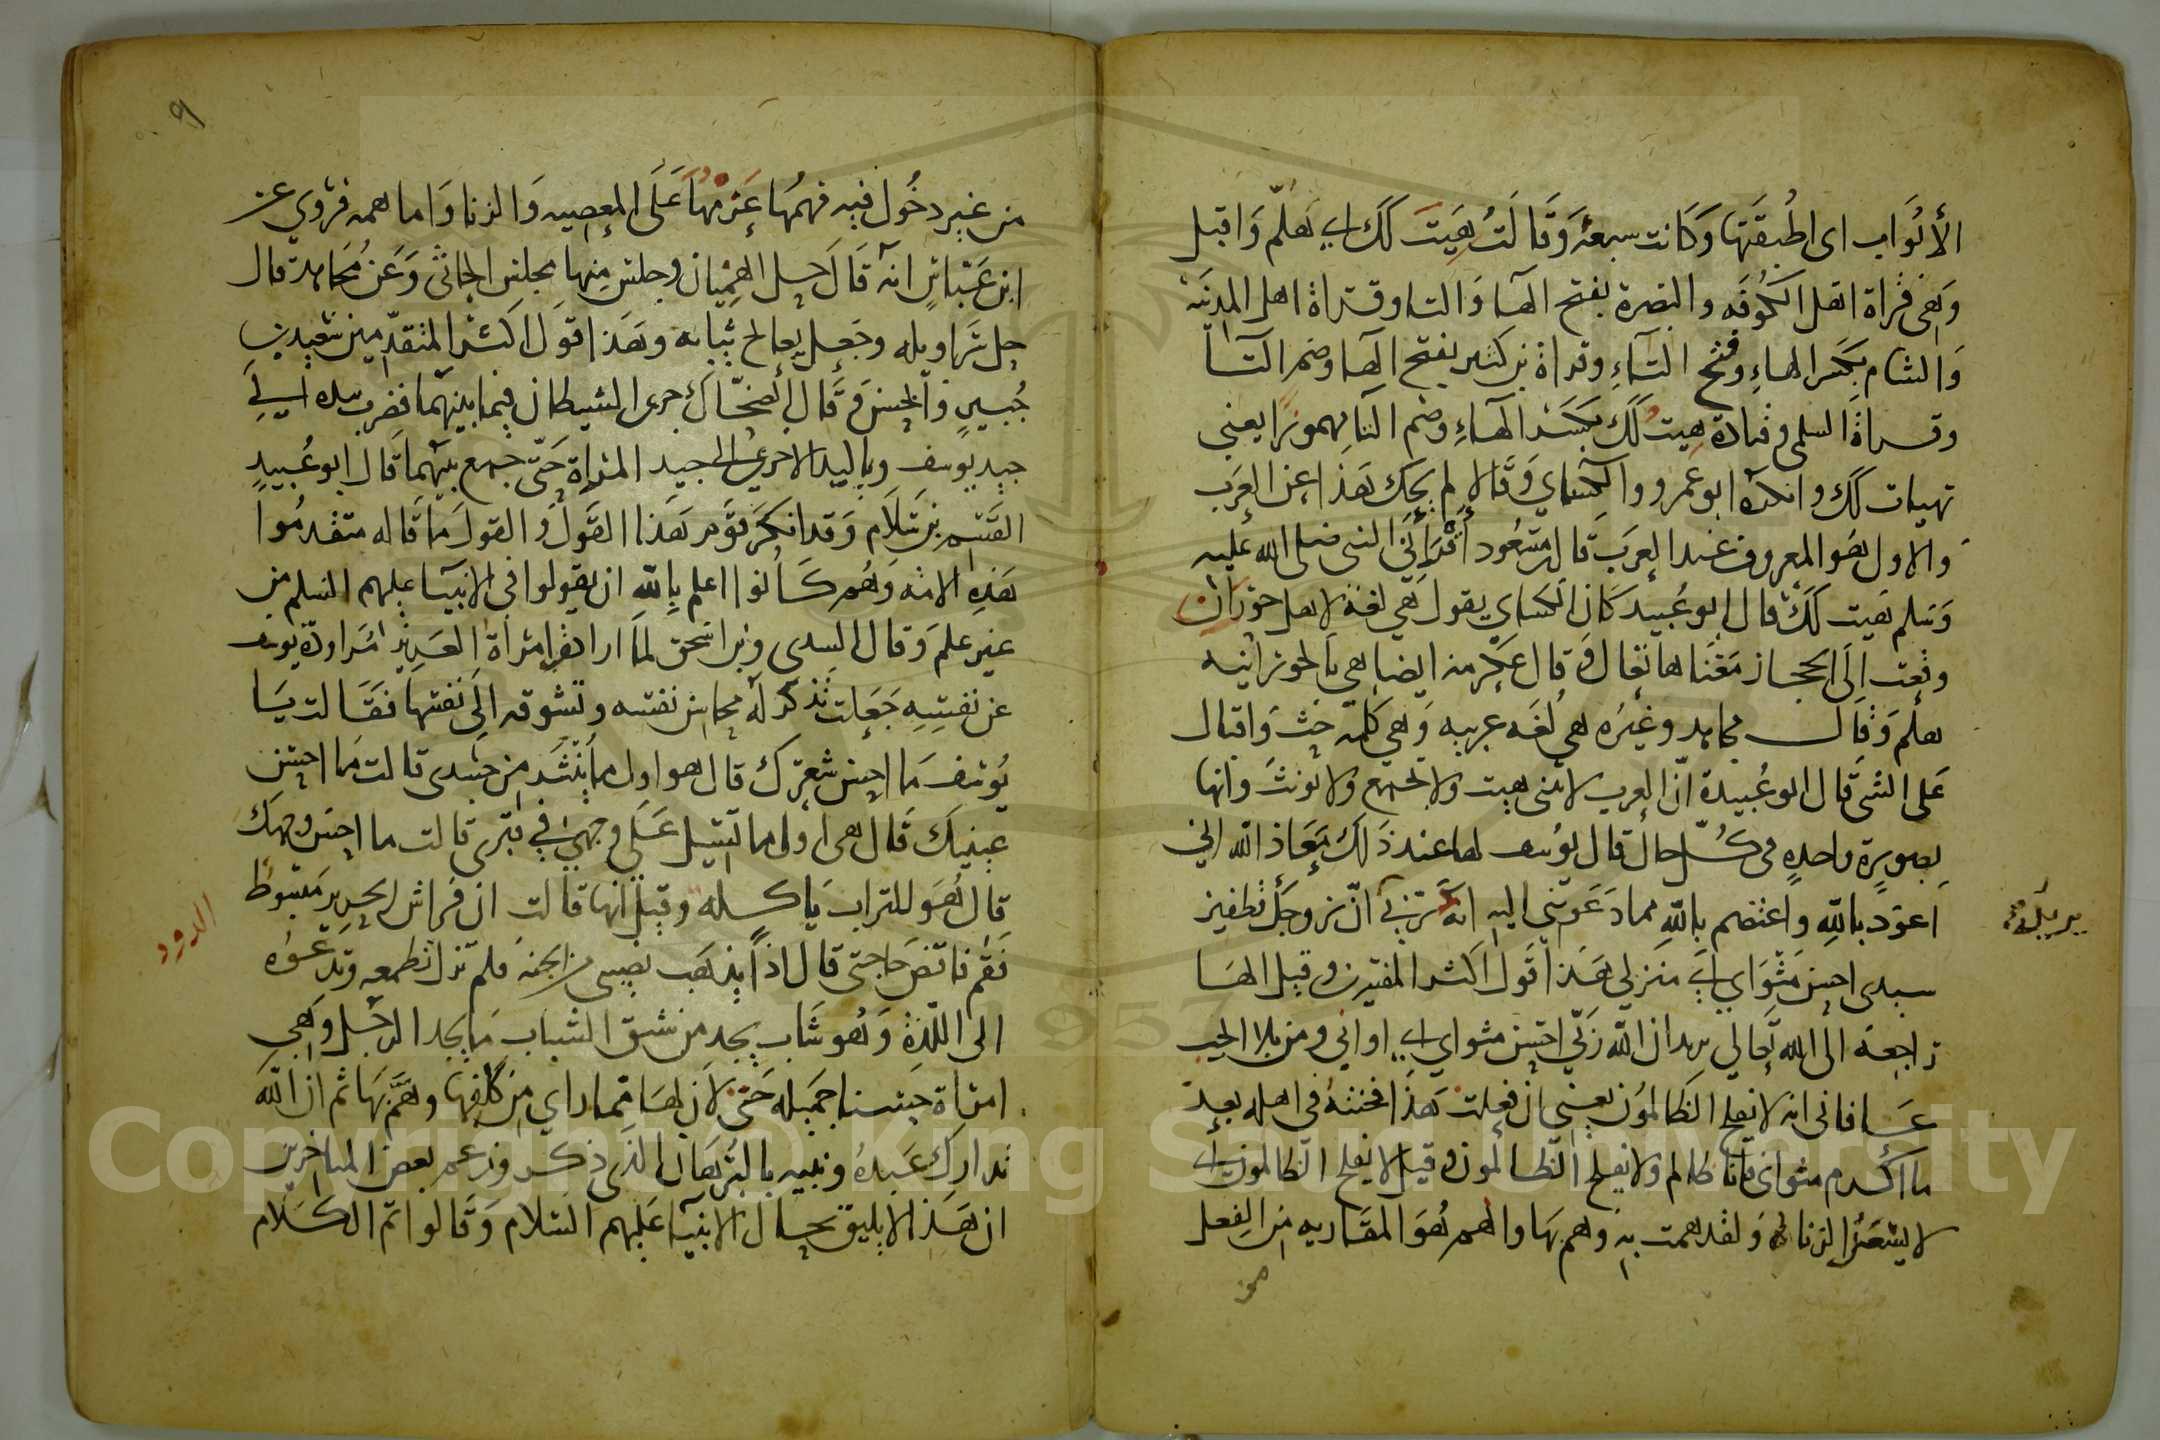 الأبْوَاب اى اطْبقَتها وَكَانت سبعة وَقَالَتْ هَيتَ لَكَ اى هلمّ وَاقبل
وَهى قراة اهل الكُوفَه والبصرة بفتح الها وَالتا وقراة اهل المدينَة
وَالشام بكسَر الهاءِ وفتح التاءِ وقراة بن كثير بفتح الها وضم التا
وقراة السلمى وقتادة هِيتُ لَكَ بكسَر الهاءِ وضم التا مهموزًا يعنى
تهيات لَكَ وانكره ابو عمرو والكِسَاي وَقَالا لم يحك هَذَا عن العَرَب
والاول هَو المعروف عند العرَب قَال بن مسعُود أقرَأَنى النبى صلى الله عليه
وَسَلم هَيت لَكَ قال ابو عُبيد كَان الكسَاي يقول هي لغة لاهل حوران
وقعت الَى الحجاز مَعْناها تعَال وَقال عكرمة ايضا هي بالحورانيه
هلمّ وَقَال مجاهد وغيره هي لُغَه عربيه وَهى كلمة حثّ وَاقبال
عَلى الشى قَال ابو عُبيدة انّ العرب لا تثنى هيت ولا تجمع ولا تونث وانها
بصورةٍ واحدةٍ فى كُلّ حال قال يوُسف لها عند ذَلكَ مَعَاذ الله اى
اعوذ باللهِ واعتصم باللهِ مما دَعَوتنى اليهِ انَّه رَبى انّ زوجَكَ قطفير
سيدى احسن مَثْوَاي اى منزلى هَذا قَول اكثر المفسرين وقيل الهَا
راجعَة الى الله تَعالي يريد ان الله رَبّى احسن مثواي اى اوانى ومن بلا الجب
عَافانى انه لا يفلح الظالموُن يعنى ان فعلت هَذَا فخنته فى اهله بعد
ما اكرم مثواى فانا ظالم ولا يفلح الظالمون وقيل لا يفلح الظالمون اى
لا يسْعَدُ الزناه وَلقد همت بهِ وهم بهَا والهم هُوَ المقَاربه منَ الفعل
من
بريدكه
٩
من غير دخُول فيه فهمُها عَزمُهَا عَلَى المعصِيه وَالزنا وَاما همه فرُوي عن
ابن عَبّاسٍ انه قَالَ حل الهميان وجلس مِنها مجلس الخاتن وَعَن مُجَاهد قال
حل سَرَاويله وجَعل يعالج ثيابه وهَذا قَول اكثر المتقدّمين سَعيد بن
جُبيرٍ والحسَن وَقَال الضحّاك جرى الشيطان فيما بينهما فضرب بيده الي
جيد يوسف وباليد الاخرى الى جيد المراة حَتّى جمع بينَهما قَال ابو عُبيدٍ
القسم بن سَلاَم وَقد انكرَ قوَم هَذا القَول والقولَ مَا قَاله متقدمُوا
هَذِه الامّه وَهُم كَانوا اعلم بِاللهِ ان يقولوا فى الانبيَا عليهم السلم من
غير علم وَقال السدي وبن اسحق لمَا ارادت امرَأة العَزيز مُرَاودة يوسف
عن نفسِه جَعَلت تذكر له محاسن نفسه وتشَوقه الَى نفسهَا فقَالت يَا
يُوسف مَا احسن شعرَك قال هو اول ما ينتثر من جسدى قالت مَا احسن
عينيك قَال هى اول ما تسَيل عَلَى وجهى في قبرى قالت ما احسن وجهك
قال هُوَ للتراب يَاكله وقيل انها قالت ان فراش الحرير مَبسُوط
فَقم فاقض حَاجتى قال اذًا يذهَب نصيبى من الجنة فلم تزل تطمعه وتدعُوه
الى اللّذة وَهُو شَاب يجد من شبق الشباب مَا يجد الرجل وَهى
امرَاة حسنا جَميله حَتى لان لهَا مما راي من كلفهَا وهَمَّ بهَا ثم ان الله
تدارك عَبدهُ ونبيه بالبُرهَان الذى ذكر وزعم بعض المتاخرين
ان هَذا لا يليق بحَال الانبيَا عَليهم السَلام وَقَالوا تم الكَلاَم
الدود
Copyright © King Saud University
1957